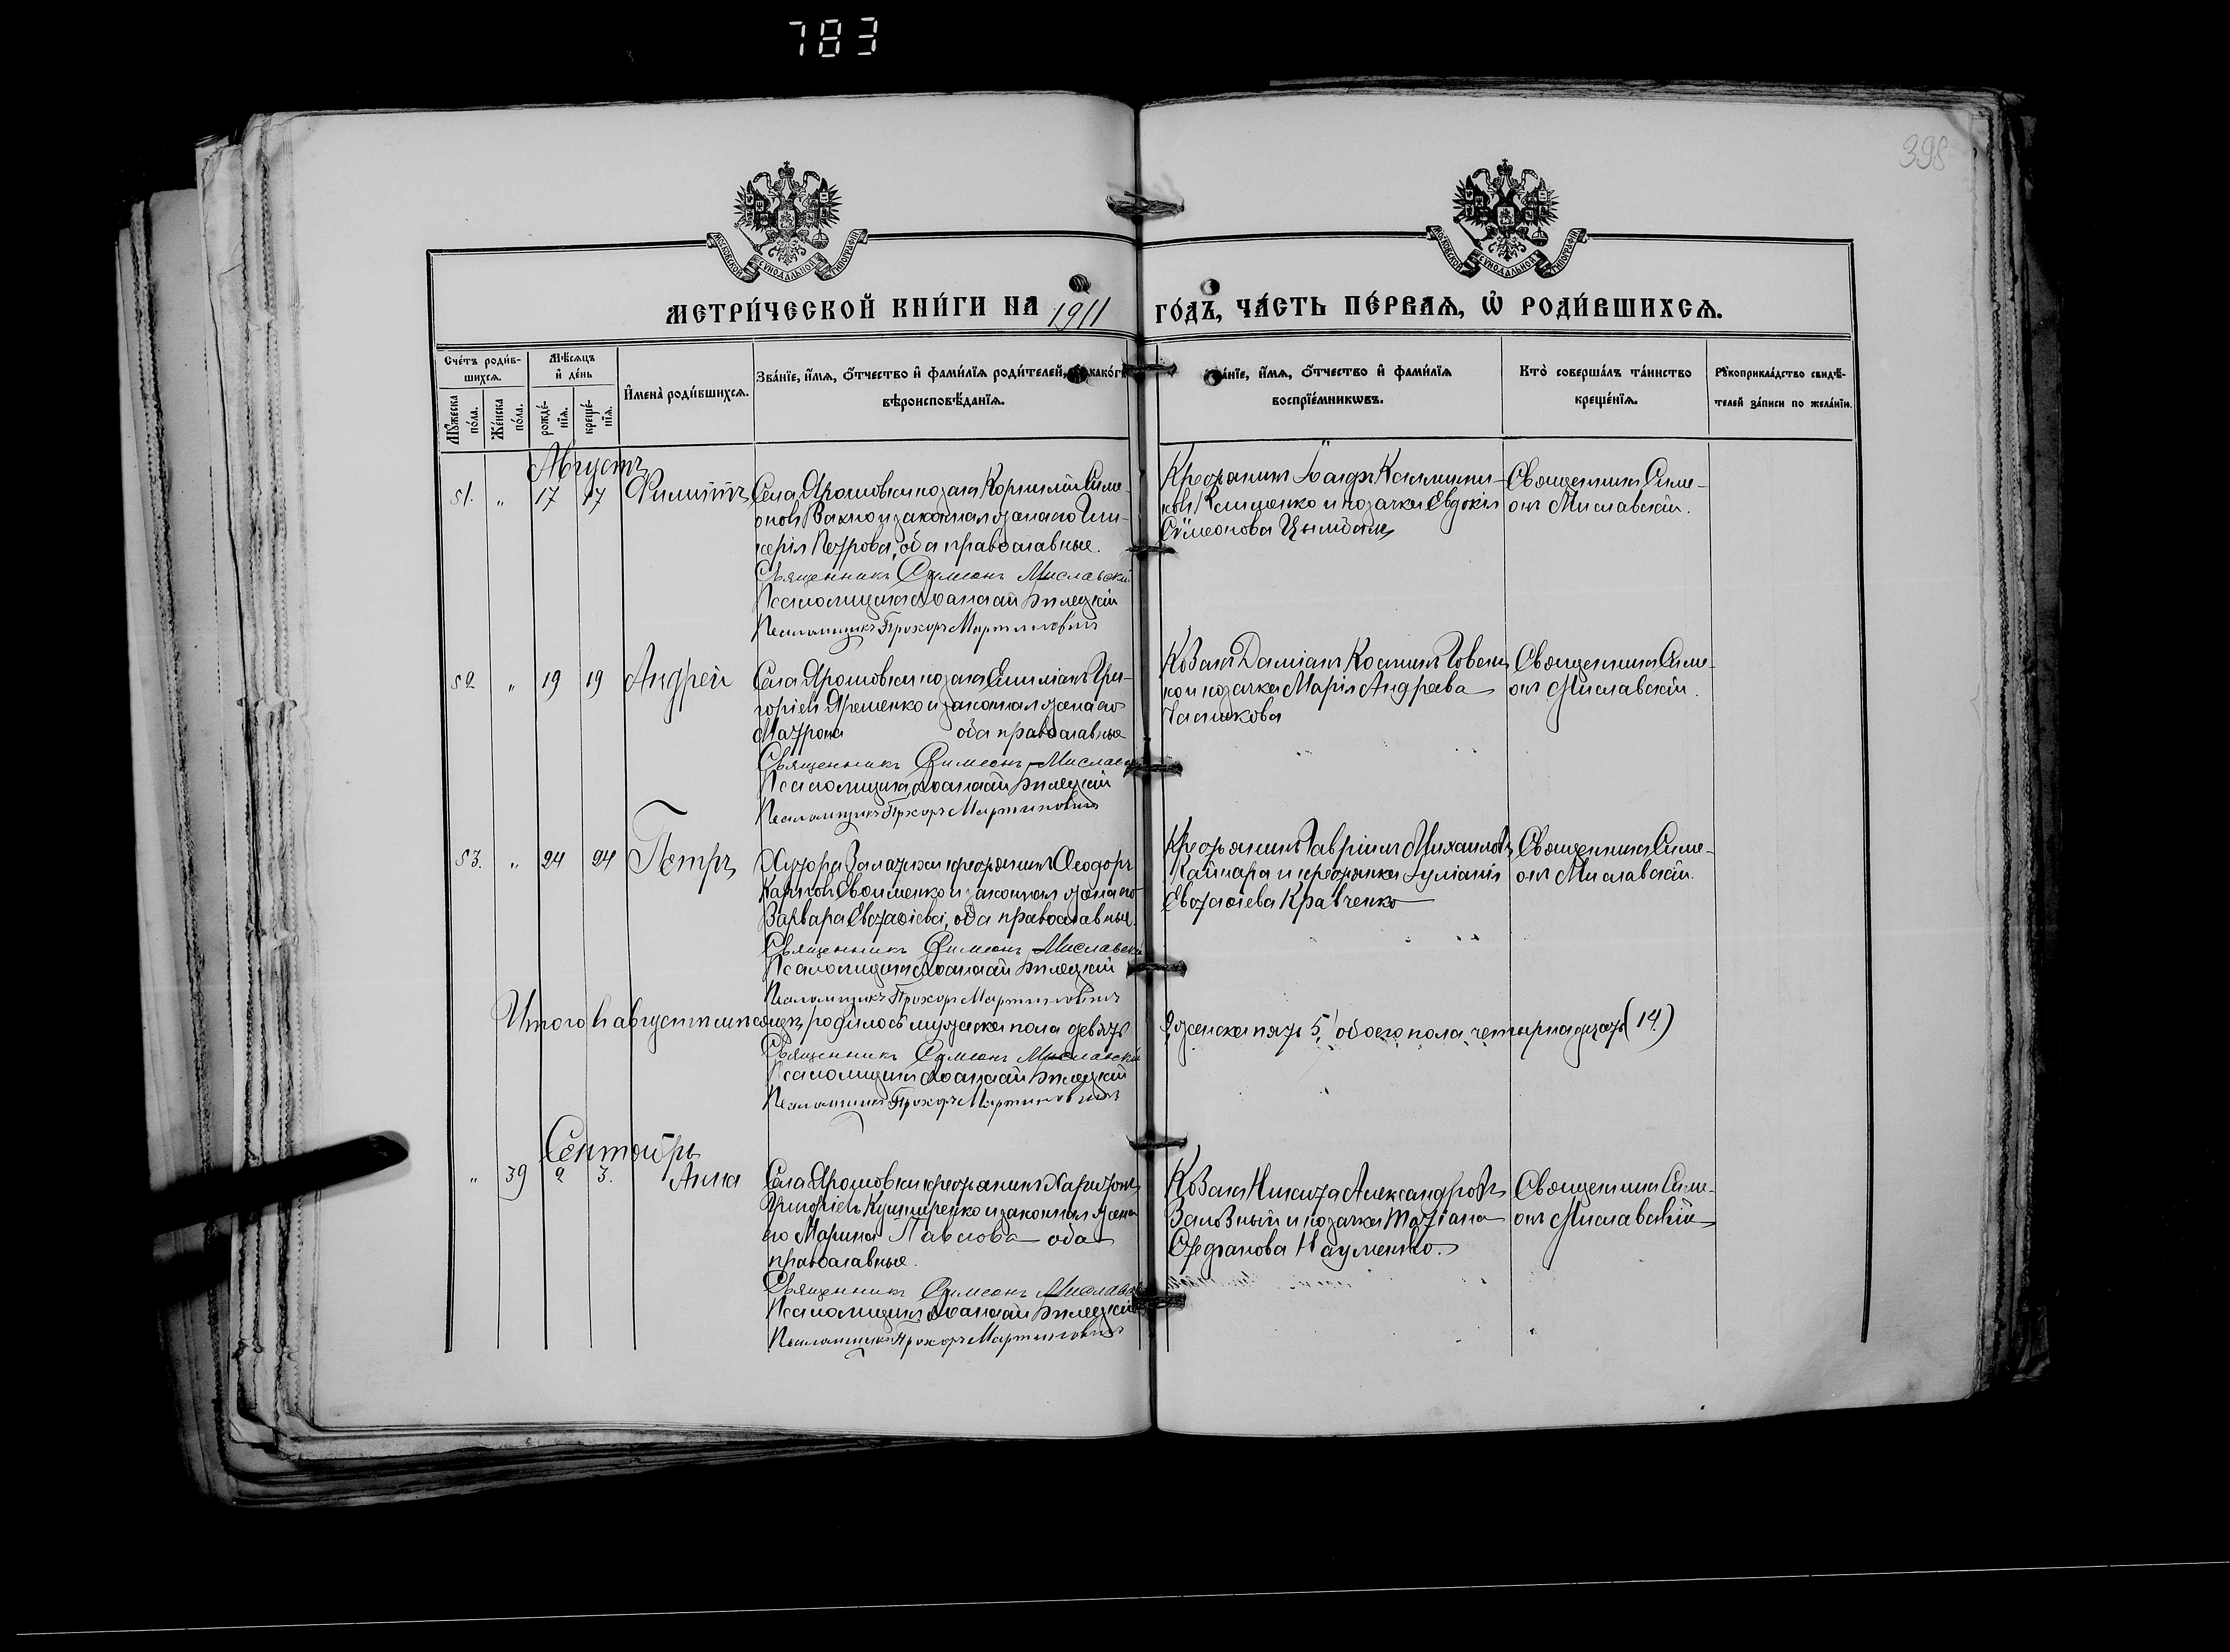 783
398
МОСКОВСКОЙ СѴНОДАЛЬНОЙ ТИПОГРАФІИ
МОСКОВСКОЙ СѴНОДАЛЬНОЙ ТИПОГРАФІИ
МЕТРИ́ЧЕСКОЙ КНИ́ГИ НА 1911 ГО́ДЪ, ЧА́СТЬ ПЕ́РВАѦ, Ѿ РОДИ́ВШИХСѦ.
Сче́тъ роди́в-
шихсѧ.
Мꙋ́жеска по́ла.
Же́нска по́ла.
Мѣ́сяцъ
и҆ де́нь
рожде́-
нїѧ.
креще́-
нїѧ.
И҆мена̀ роди́вшихсѧ.
Зва́нїе, и҆́мѧ, ѻ҆́тчество и҆ фами́лїѧ роди́телей, како́гѡ
вѣроисповѣ́данїѧ.
ва́нїе, и҆́мѧ, ѻ҆́тчество и҆ фами́лїѧ
воспрїе́мникѡвъ.
Кто̀ соверша́лъ та́инство
креще́нїѧ.
Рꙋкоприкла́дство свидѣ́-
телей за́писи по жела́нїю.
Августъ
51. " 17 17 Филиппъ
Села Ярошовки козакъ Корнилій Симе-
оновъ Вахно и законная жена его Гли-
керія Петрова, оба православные.
Священникъ Симеонъ Миславскій
Псаломщикъ Аѳанасій Билецкій
Псаломщикъ Прохоръ Мартиновичъ
Крестьянинъ Іоаннъ Каллини-
ковъ Клименко и козачка Евдокія
Сѵмеонова Цымбалъ
Священникъ Симе-
онъ Миславскій.
52 " 19 19 Андрей
Села Ярошовки козакъ Емиліанъ Гри-
горіевъ Ярешенко и законная жена его
Матрона оба православные
Священникъ Симеонъ Миславскій
Псаломщикъ Аѳанасій Билецкій
Псаломщикъ Прохоръ Мартиновичъ
Козакъ Даміанъ Косминъ
ко и козачка Марія Андреева
Священникъ Симе-
онъ Миславскій.
53. " 24 24 Петръ
Хутора крестьянинъ Ѳеодоръ
Карповъ и законная жена его
Варвара Евстафіева, оба православные.
Священникъ Симеонъ Миславскій
Псаломщикъ Аѳанасій Билецкій
Псаломщикъ Прохоръ Мартиновичъ
Крестьянинъ Гавріилъ Михаиловъ
и крестьянка Іуліанія
Евстафіева Кравченко
Священникъ Симе-
онъ Миславскій.
Итого въ августѣ мѣсяцѣ родилось мужеска пола девять
9, женска пять 5, обоего пола четырнадцать (14.)
Священникъ Симеонъ Миславскій
Псаломщикъ Аѳанасій Билецкій
Псаломщикъ Прохоръ Мартиновичъ
Сентябрь
" 39 2 3. Анна
Села Ярошовки крестьянинъ Харитонъ
Григоріевъ Кушниренко и законная жена
его Марина Павлова оба
православные.
Священникъ Симеонъ Миславскій
Псаломщикъ Аѳанасій Билецкій
Псаломщикъ Прохоръ Мартиновичъ
Козакъ Никита Александровъ
и козачка Татіана
Стефанова Науменко.
Священникъ Симе-
онъ Миславскій